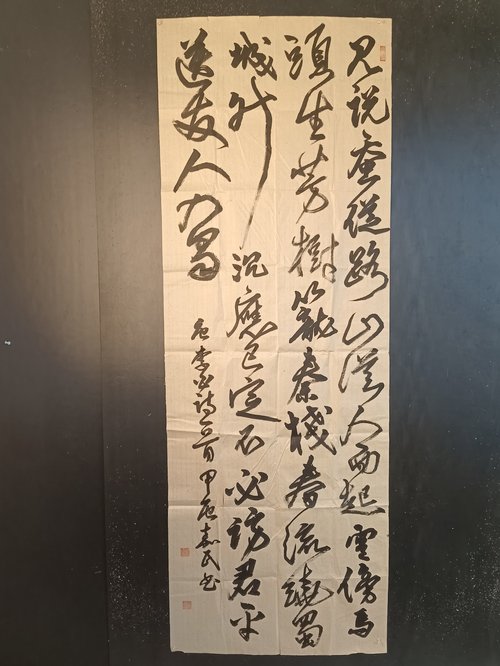 见说蚕從路山從人面起雲傍马
頭生芳樹籠秦棧春流繞蜀
城升沉應已定不必訪君平
送友人入蜀
唐李白诗一首甲辰嘉民书